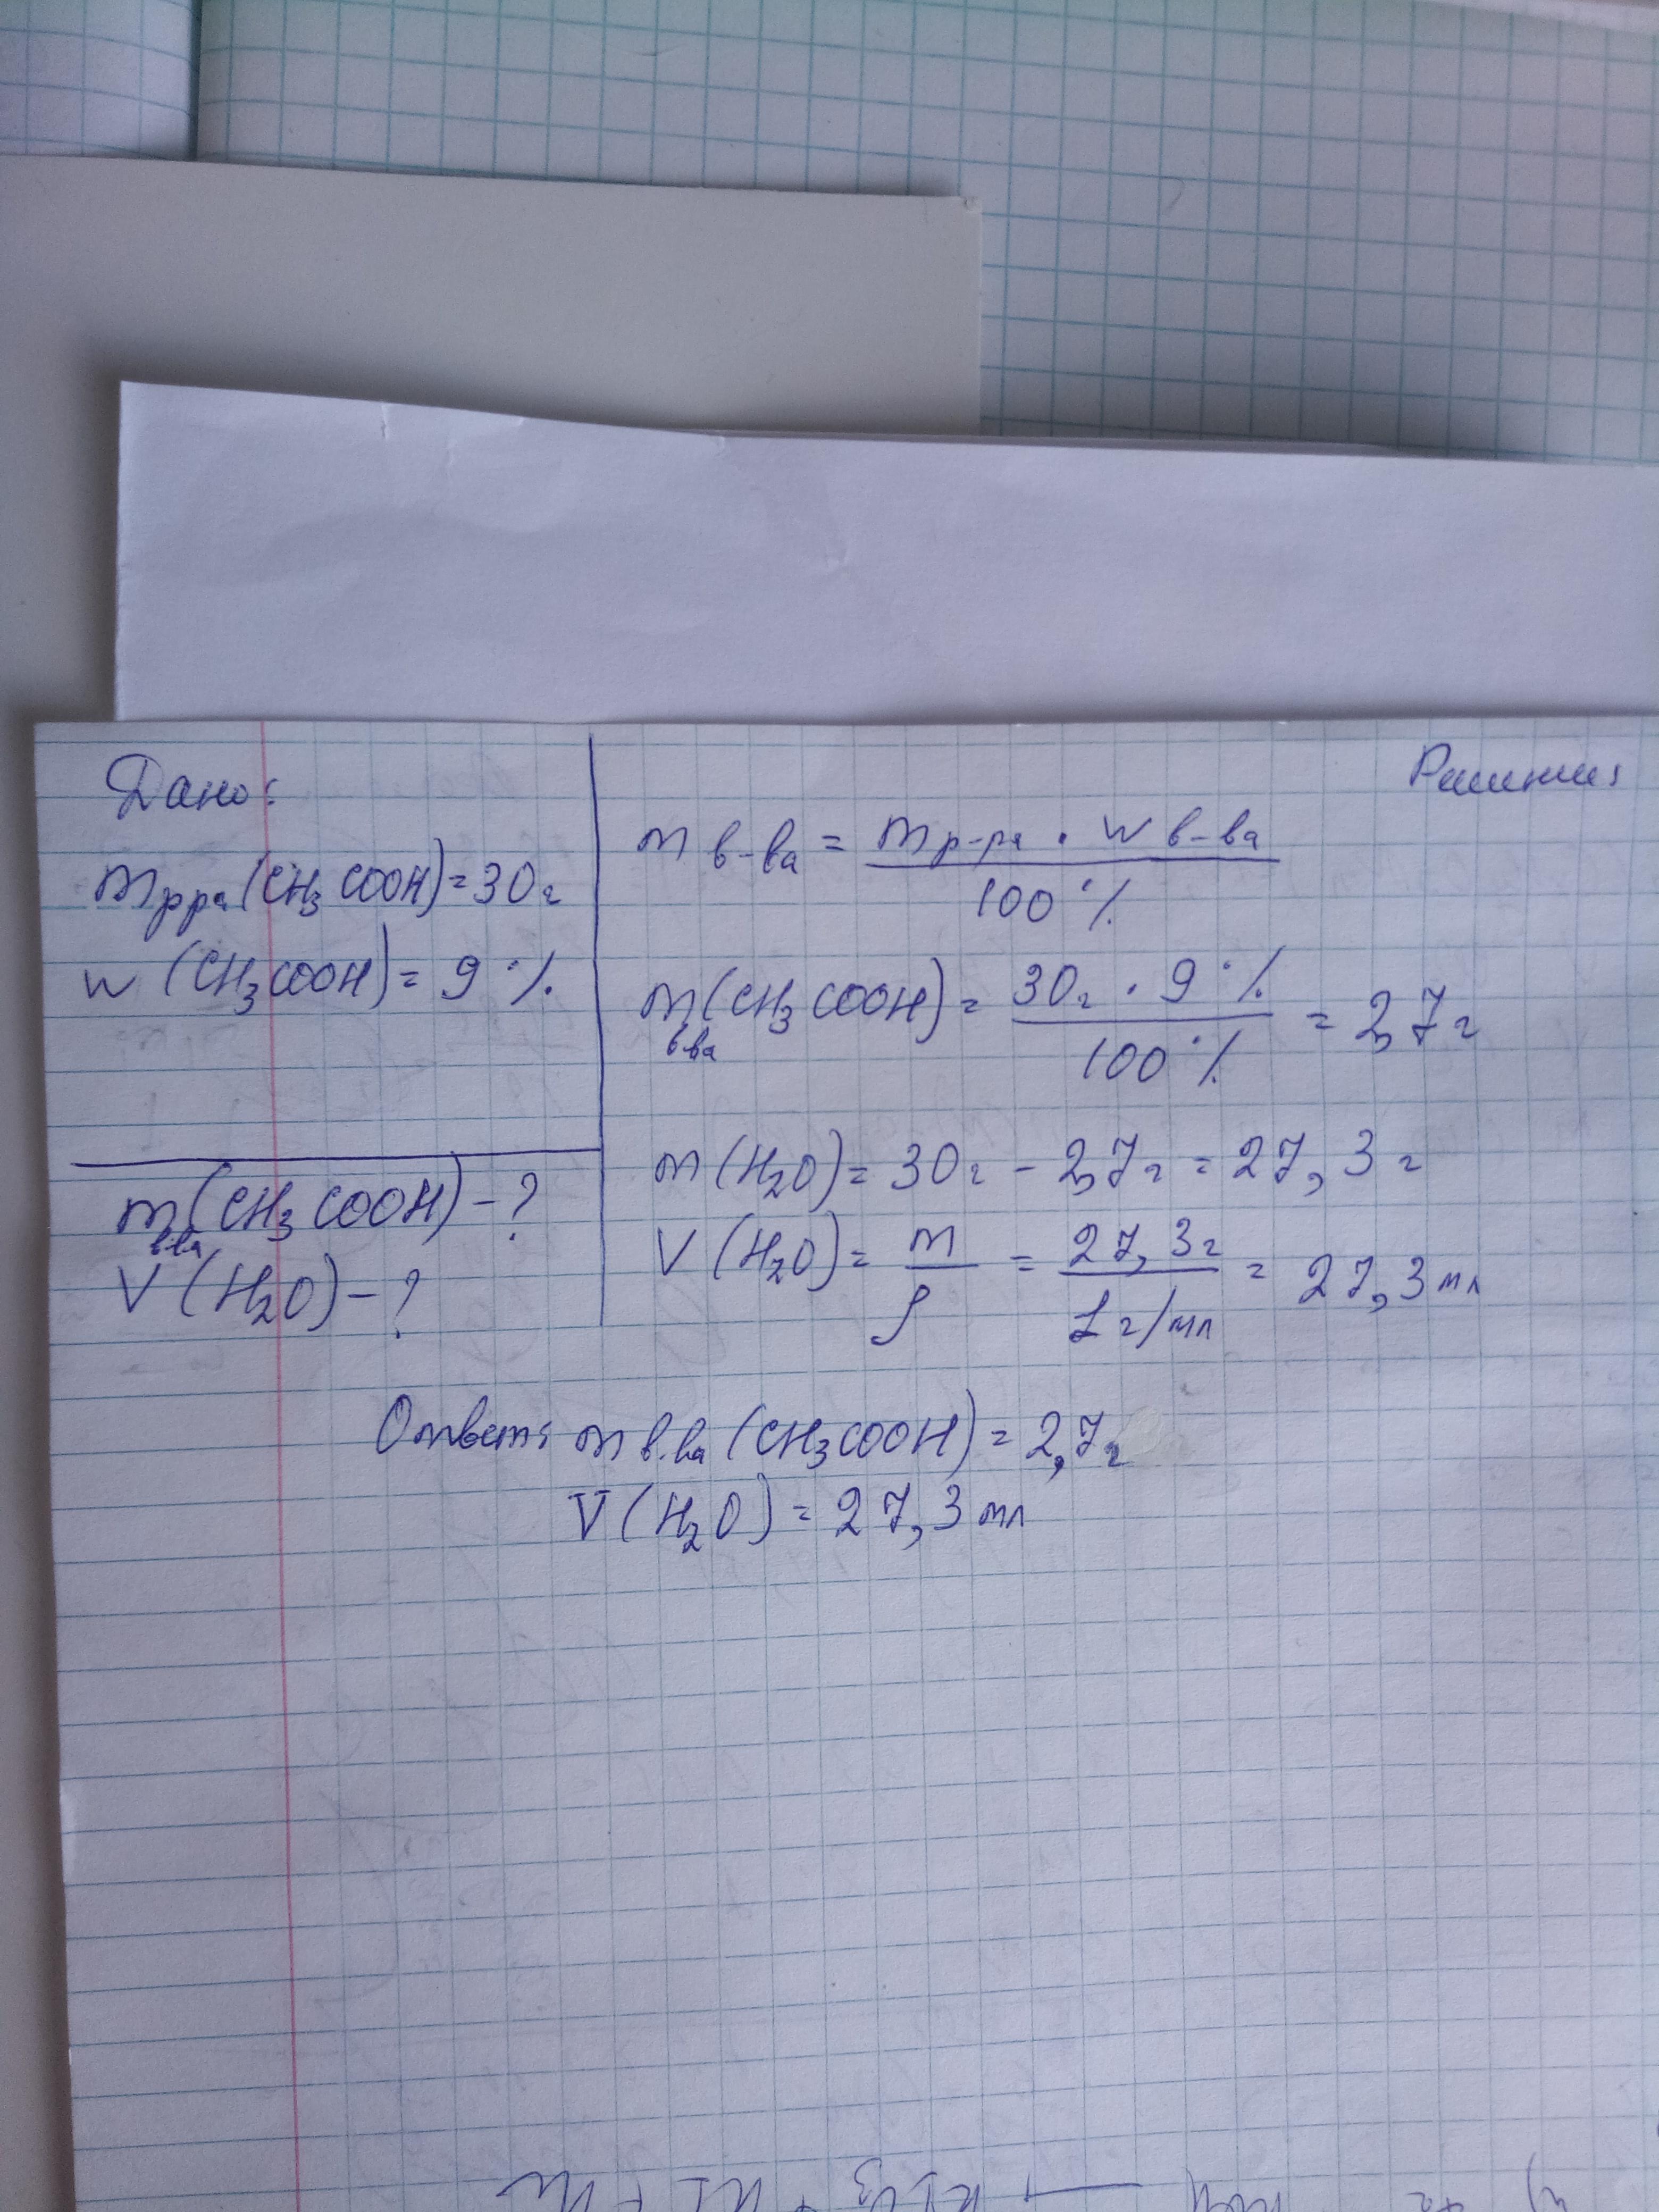 Дано:
mрра(CH3COOH)=30г
w (CH3COOH)= 9 %
m(CH3COOH)-?
в-ва
V (H2O)-?
Решение:
m в-ва = mр-ра · w в-ва
100 %
m(CH3COOH)= 30г · 9 % = 2,7г
в-ва
100 %
m(H2O)= 30г - 2,7г = 27,3г
V(H2O)= m = 27,3г = 27,3мл
ρ 1г/мл
Ответ: m в-ва (CH3COOH)= 2,7г
V(H2O)= 27,3мл